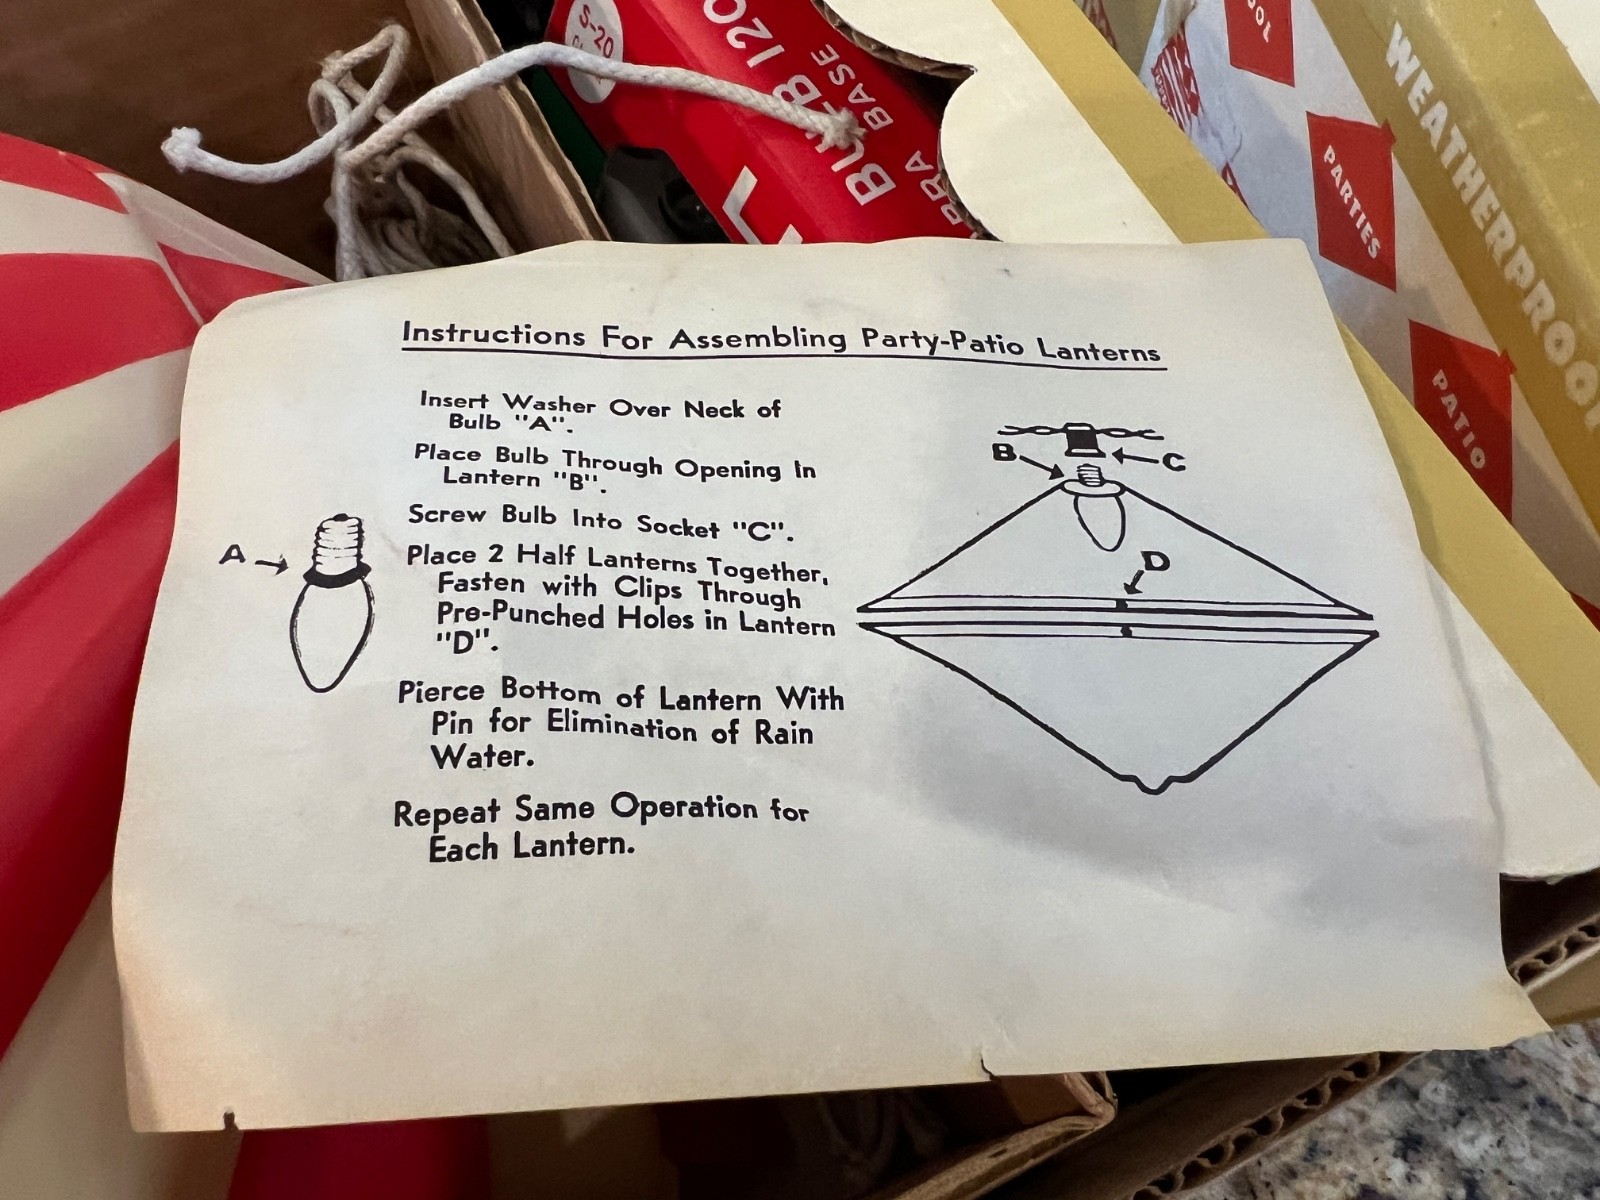 S-20
BULB 120
BASE
POOL
PARTIES
PATIO
WEATHERPROOF
Instructions For Assembling Party-Patio Lanterns
Insert Washer Over Neck of
Bulb "A".
Place Bulb Through Opening In
Lantern "B".
Screw Bulb Into Socket "C".
Place 2 Half Lanterns Together,
Fasten with Clips Through
Pre-Punched Holes in Lantern
"D".
Pierce Bottom of Lantern With
Pin for Elimination of Rain
Water.
Repeat Same Operation for
Each Lantern.
A
B
C
D